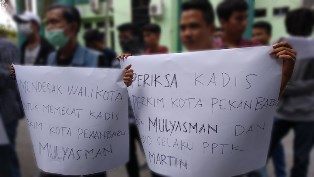 MENDESAK WALIKOTA
UNTUK MEMECAT KADIS
KOTA PEKANBARU
MULYASMAN
PERIKSA KADIS
PERKIM KOTA PEKANBARU
MULYASMAN DAN
SELAKU PPTK
MARTIN